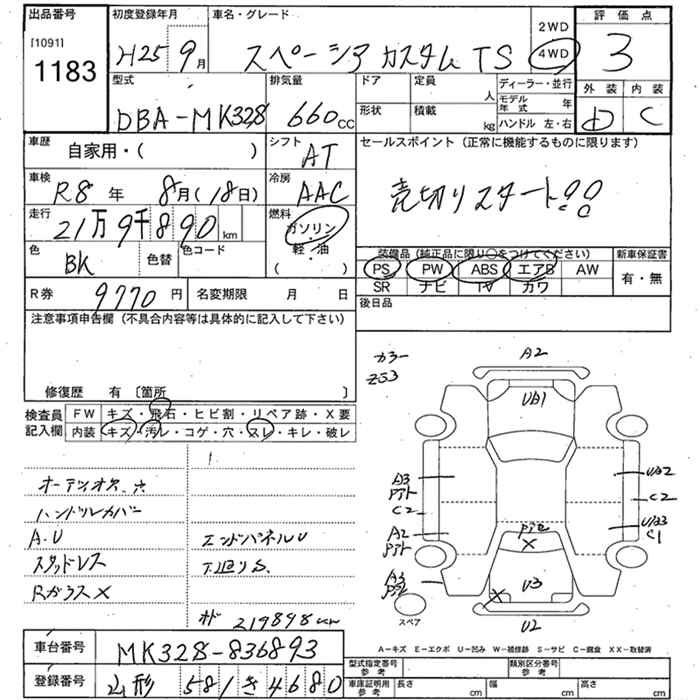 出品番号
[1091]
1183
初度登録年月
H25 9月
車名・グレード
スペーシア カスタム TS
2WD
4WD
評価点
3
外装 内装
D C
型式
DBA-MK32S
排気量
660cc
ドア 定員
人
形状 積載
kg
ディーラー・並行
モデル年式 年
ハンドル 左・右
車歴
自家用・( )
シフト
AT
セールスポイント(正常に機能するものに限ります)
売切りスタート!!
車検
R8年 8月(18日)
冷房
AAC
走行
21万9千890km
燃料
ガソリン
軽・油
( )
色
BK
色替
色コード
装備品(純正品に限り○をつけてください)
PS PW ABS エアB AW
SR ナビ TV カワ
新車保証書
有・無
R券
9770円
名変期限 月 日
後日品
注意事項申告欄(不具合内容等は具体的に記入して下さい)
修復歴 有〔箇所 〕
検査員記入欄
FW キズ・飛石・ヒビ割・リペア跡・X要
内装 キズ・汚レ・コゲ・穴・スレ・キレ・破レ
オーディオ欠.穴
ハンドルカバー
A.U
スタッドレス
Rガラス X
エンドパネルU
下廻りS
オド 219898km
カラー
ZJ3
A2
UB1
A3
C2
A2
A3
UA2
C2
UB3
C1
X
U3
X
U2
スペア
A-キズ E-エクボ U-凹み W-補修跡 S-サビ C-腐食 XX-取替済
車台番号
MK32S-836893
登録番号
山形 581 き 4680
型式指定番号
参考
類別区分番号
参考
車庫証明用
参考
長さ cm
幅 cm
高さ cm